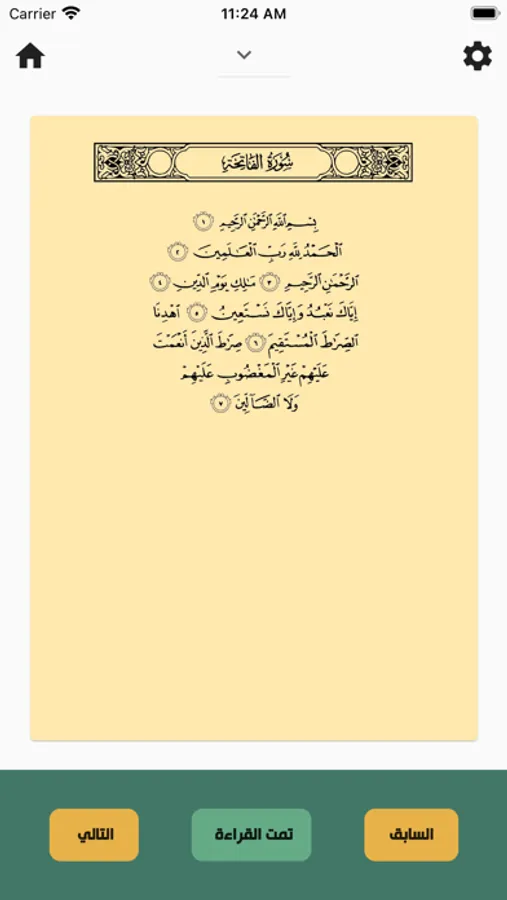 Carrier 11:24 AM
سُورَةُ الفَاتِحَةِ
بِسْمِ اللَّهِ الرَّحْمَٰنِ الرَّحِيمِ ١
الْحَمْدُ لِلَّهِ رَبِّ الْعَٰلَمِينَ ٢
الرَّحْمَٰنِ الرَّحِيمِ ٣ مَٰلِكِ يَوْمِ الدِّينِ ٤
إِيَّاكَ نَعْبُدُ وَإِيَّاكَ نَسْتَعِينُ ٥ اهْدِنَا
الصِّرَٰطَ الْمُسْتَقِيمَ ٦ صِرَٰطَ الَّذِينَ أَنْعَمْتَ
عَلَيْهِمْ غَيْرِ الْمَغْضُوبِ عَلَيْهِمْ
وَلَا الضَّآلِّينَ ٧
السابق تمت القراءة التالي